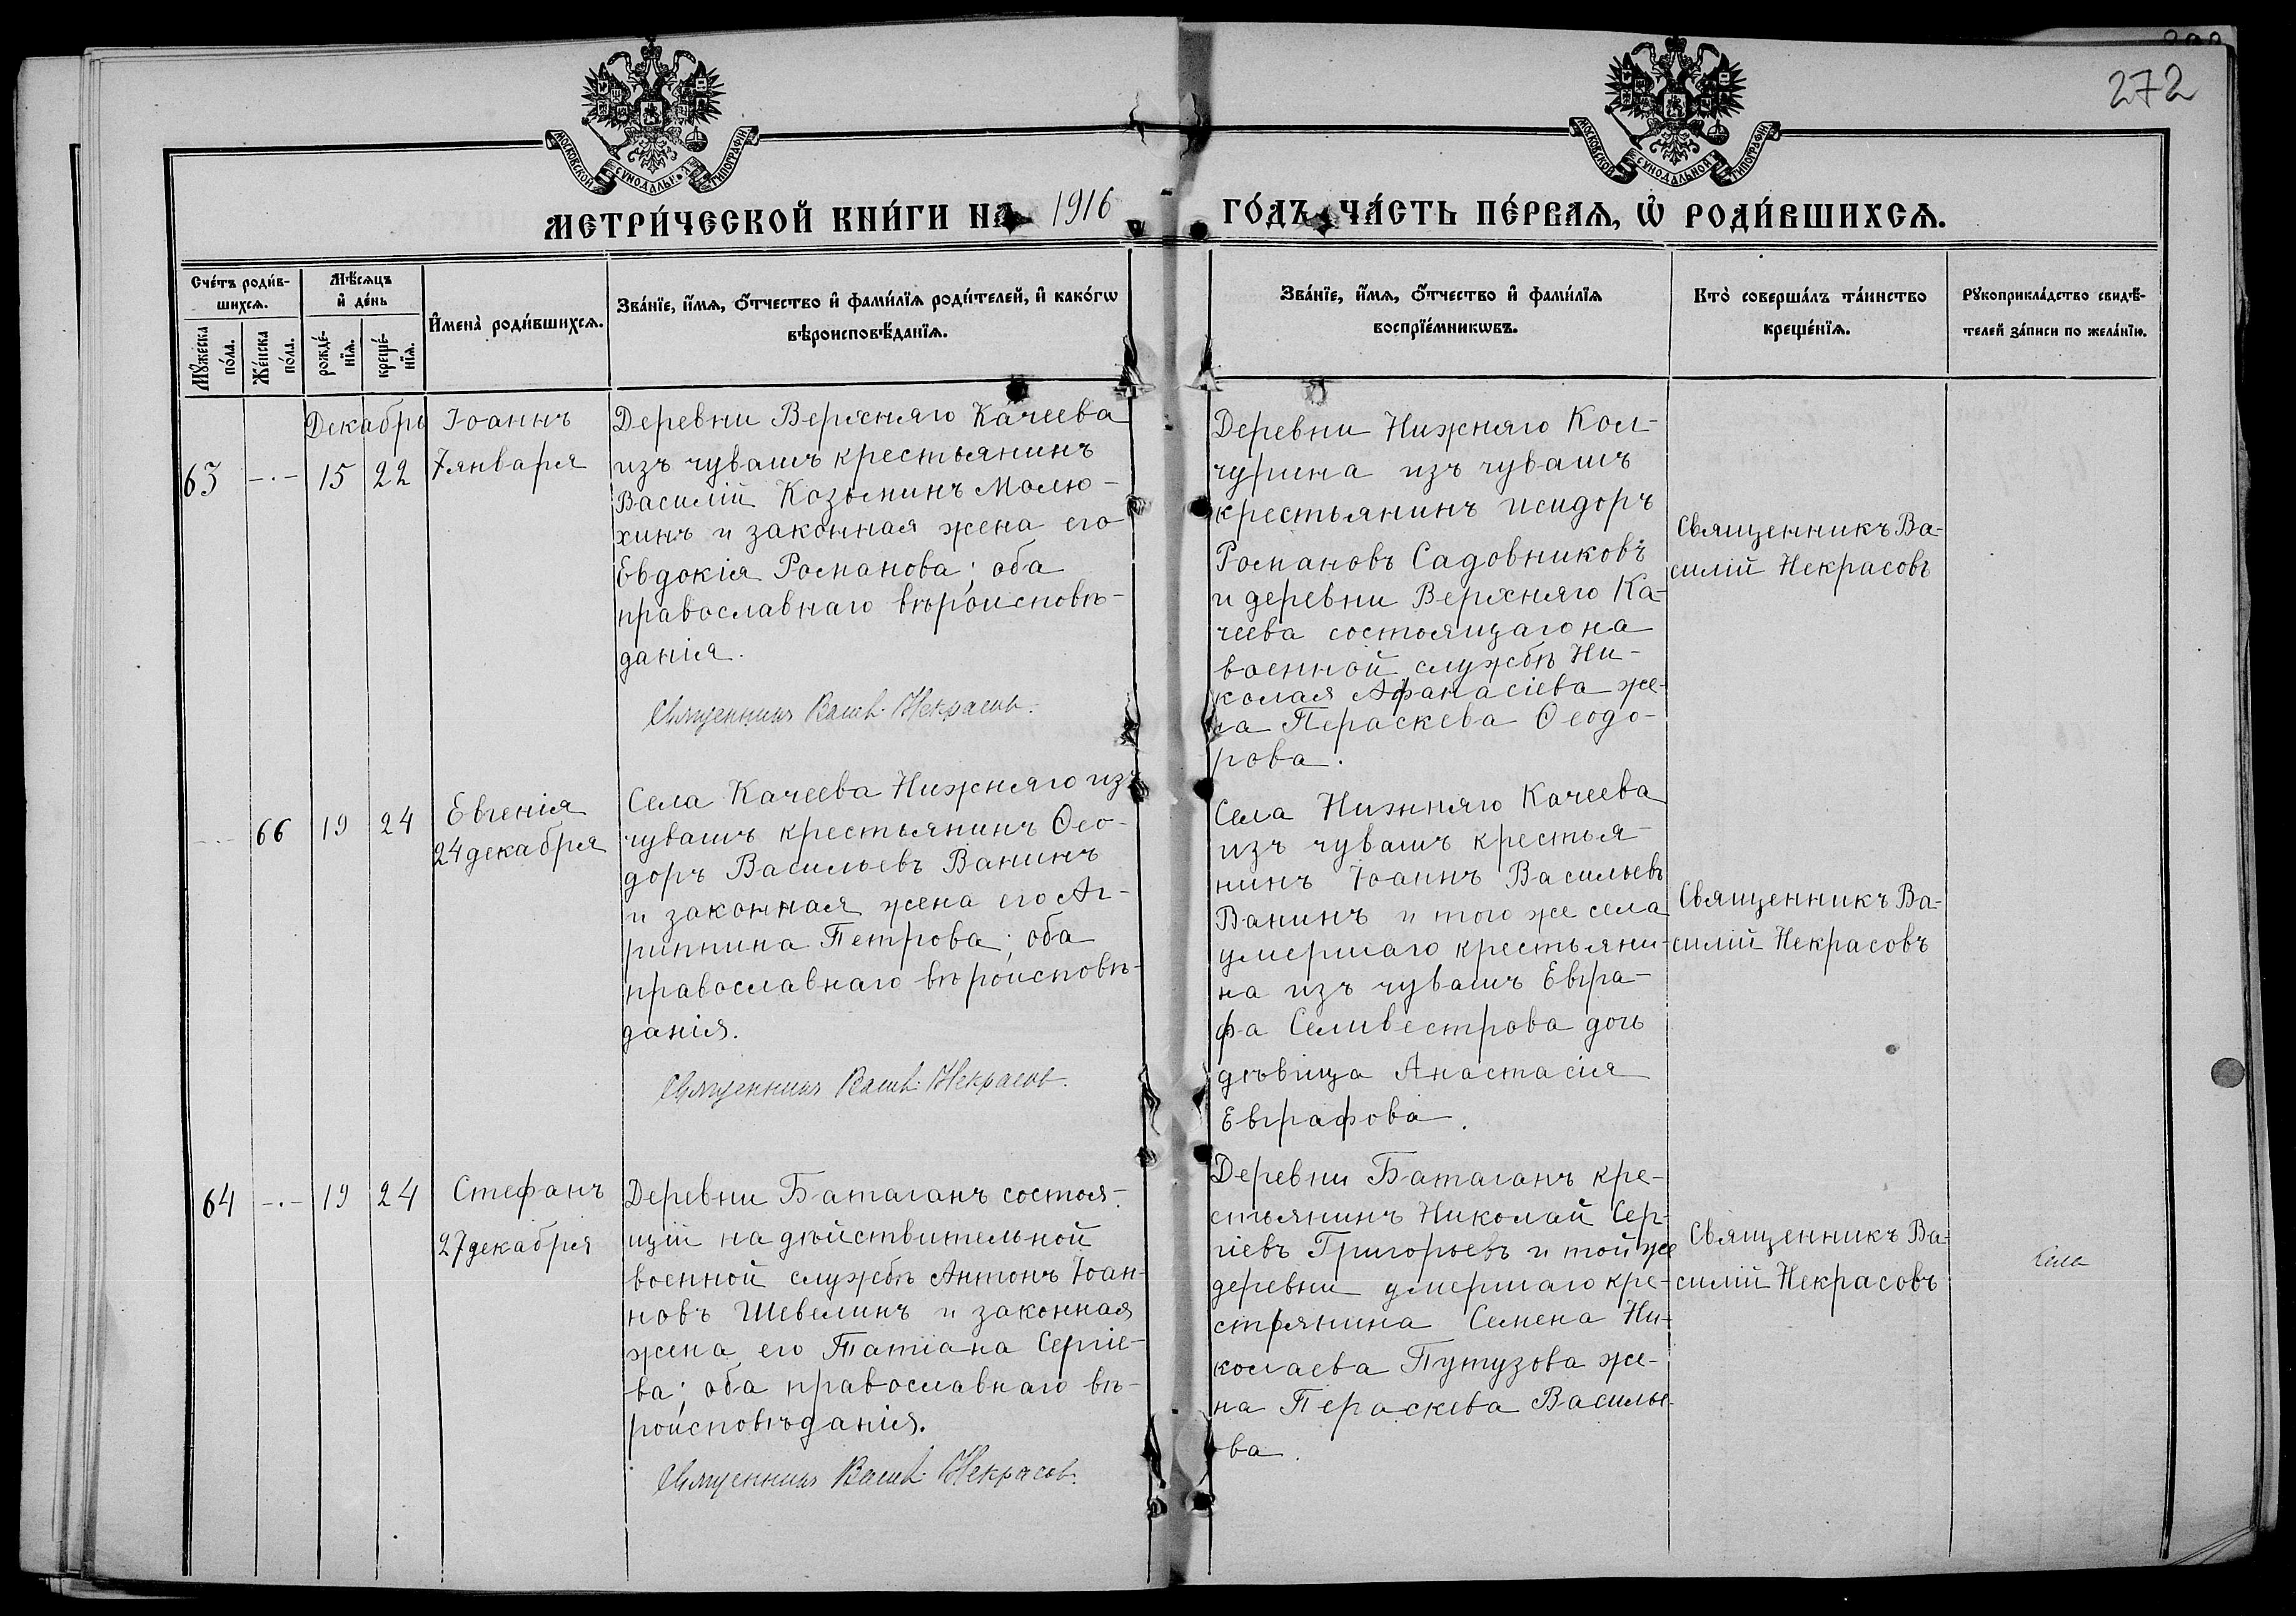 272
МОСКОВСКОЙ СУНОДАЛЬНОЙ ТИПОГРАФІИ
МОСКОВСКОЙ СУНОДАЛЬНОЙ ТИПОГРАФІИ
МЕТРИ́ЧЕСКОЙ КНИ́ГИ НА 1916 ГО́ДЪ, ЧА́СТЬ ПЕ́РВАѦ, Ѡ РОДИ́ВШИХСѦ.
Сче́тъ роди́в-
шихсѧ.
Мꙋ́жеска по́ла.
Же́нска по́ла.
Мѣ́сѧцъ и де́нь
рожде́-нїѧ.
креще́-нїѧ.
И҆мена̀ роди́вшихсѧ.
Зва́нїе, и҆́мѧ, ѻ҆́тчество и҆ фами́лїѧ роди́телей, и҆ како́гѡ
вѣроисповѣ́данїѧ.
Зва́нїе, и҆́мѧ, ѻ҆́тчество и҆ фами́лїѧ
воспрїе́мникѡвъ.
Кто̀ соверша́лъ та́инство
креще́нїѧ.
Рꙋкоприкла́дство свидѣ́-
телей за́писи по жела́нїю.
Декабрь
63 -.- 15 22
Іоаннъ
7 января
Деревни Верхняго Качеева
изъ чувашъ крестьянинъ
Василій Козьминъ Малю-
хинъ и законная жена его
Евдокія Романова; оба
православнаго вѣроисповѣ-
данія.
Священникъ Васил. Некрасовъ.
Деревни Нижняго Кол-
чурина изъ чувашъ
крестьянинъ Исидоръ
Романовъ Садовниковъ
и деревни Верхняго Ка-
чеева состоящаго на
военной службѣ Ни-
колая Афанасіева же-
на Пераскева Ѳеодо-
рова.
Священникъ Ва-
силій Некрасовъ
-.- 66 19 24
Евгенія
24 декабря
Села Качеева Нижняго изъ
чувашъ крестьянинъ Ѳео-
доръ Васильевъ Ванинъ
и законная жена его Аг-
риппина Петрова; оба
православнаго вѣроисповѣ-
данія.
Священникъ Васил. Некрасовъ.
Села Нижняго Качеева
изъ чувашъ крестья-
нинъ Іоаннъ Васильевъ
Ванинъ и того же села
умершаго крестьяни-
на изъ чувашъ Евгра-
фа Селивестрова дочь
дѣвица Анастасія
Евграфова.
Священникъ Ва-
силій Некрасовъ
64 -.- 19 24
Стефанъ
27 декабря
Деревни Батаганъ состоя-
щій на дѣйствительной
военной службѣ Антонъ Іоан-
новъ Шевелинъ и законная
жена его Татіана Сергіе-
ва; оба православнаго вѣ-
роисповѣданія.
Священникъ Васил. Некрасовъ.
Деревни Батаганъ кре-
стьянинъ Николай Сер-
гіевъ Григорьевъ и той же
деревни умершаго кре-
стьянина Семена Ни-
колаева Путузова же-
на Пераскева Василье-
ва.
Священникъ Ва-
силій Некрасовъ